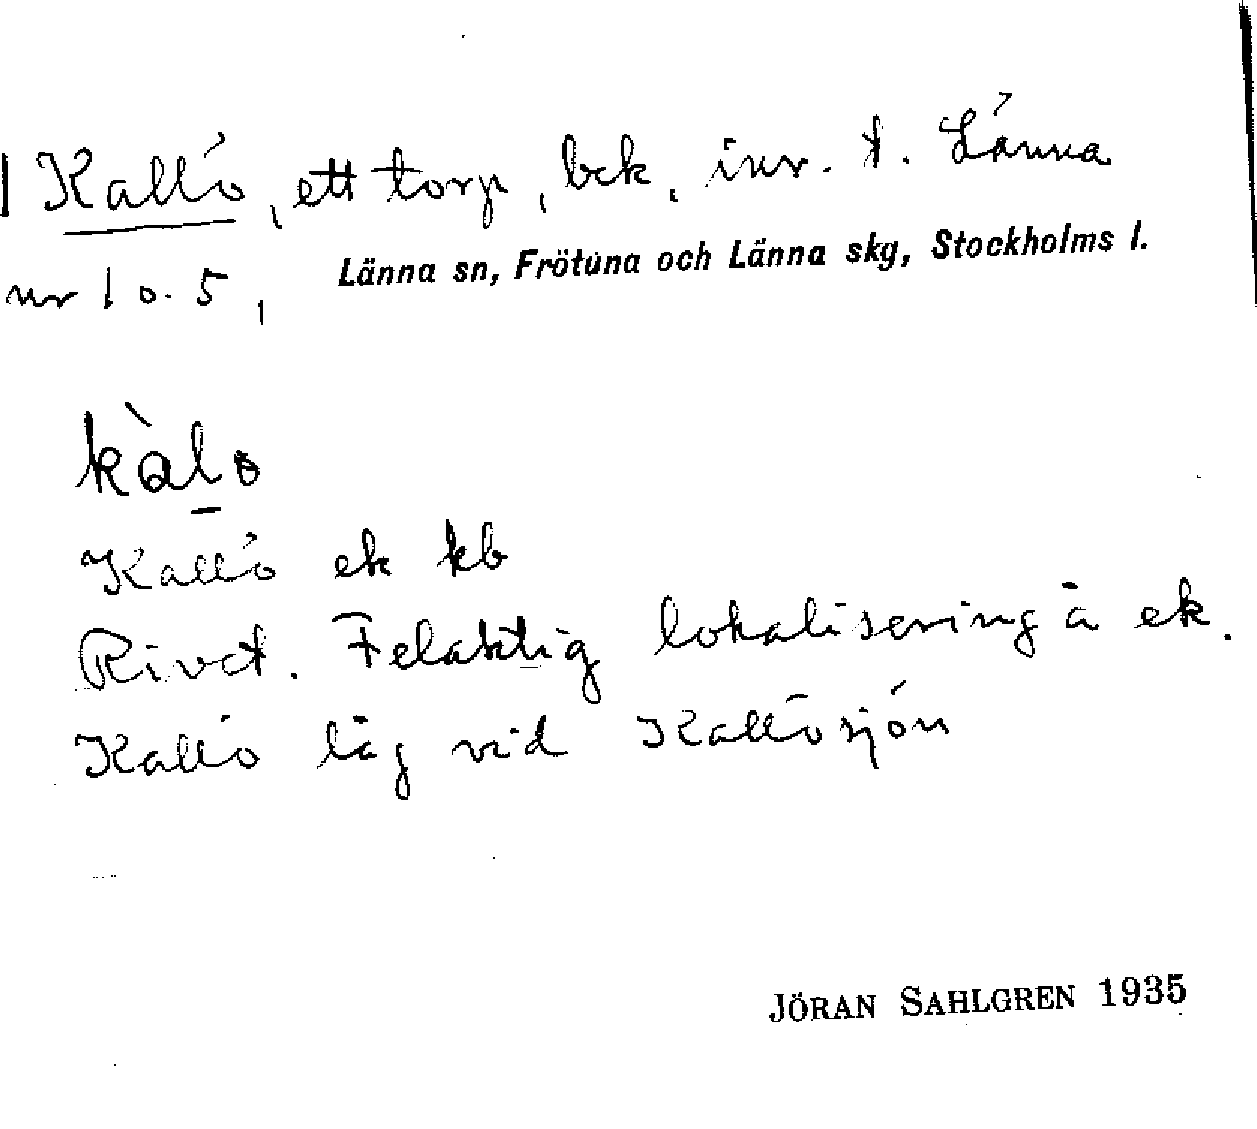 Kallö, ett torp, bek, inr. t. Länna
Länna sn, Frötuna och Länna skg, Stockholms l.
nr 1 o. 5,
kàlo
Kallö ek kb
Rivet. Felaktig lokalisering å ek.
Kallö låg vid Kallösjön
JÖRAN SAHLGREN 1935